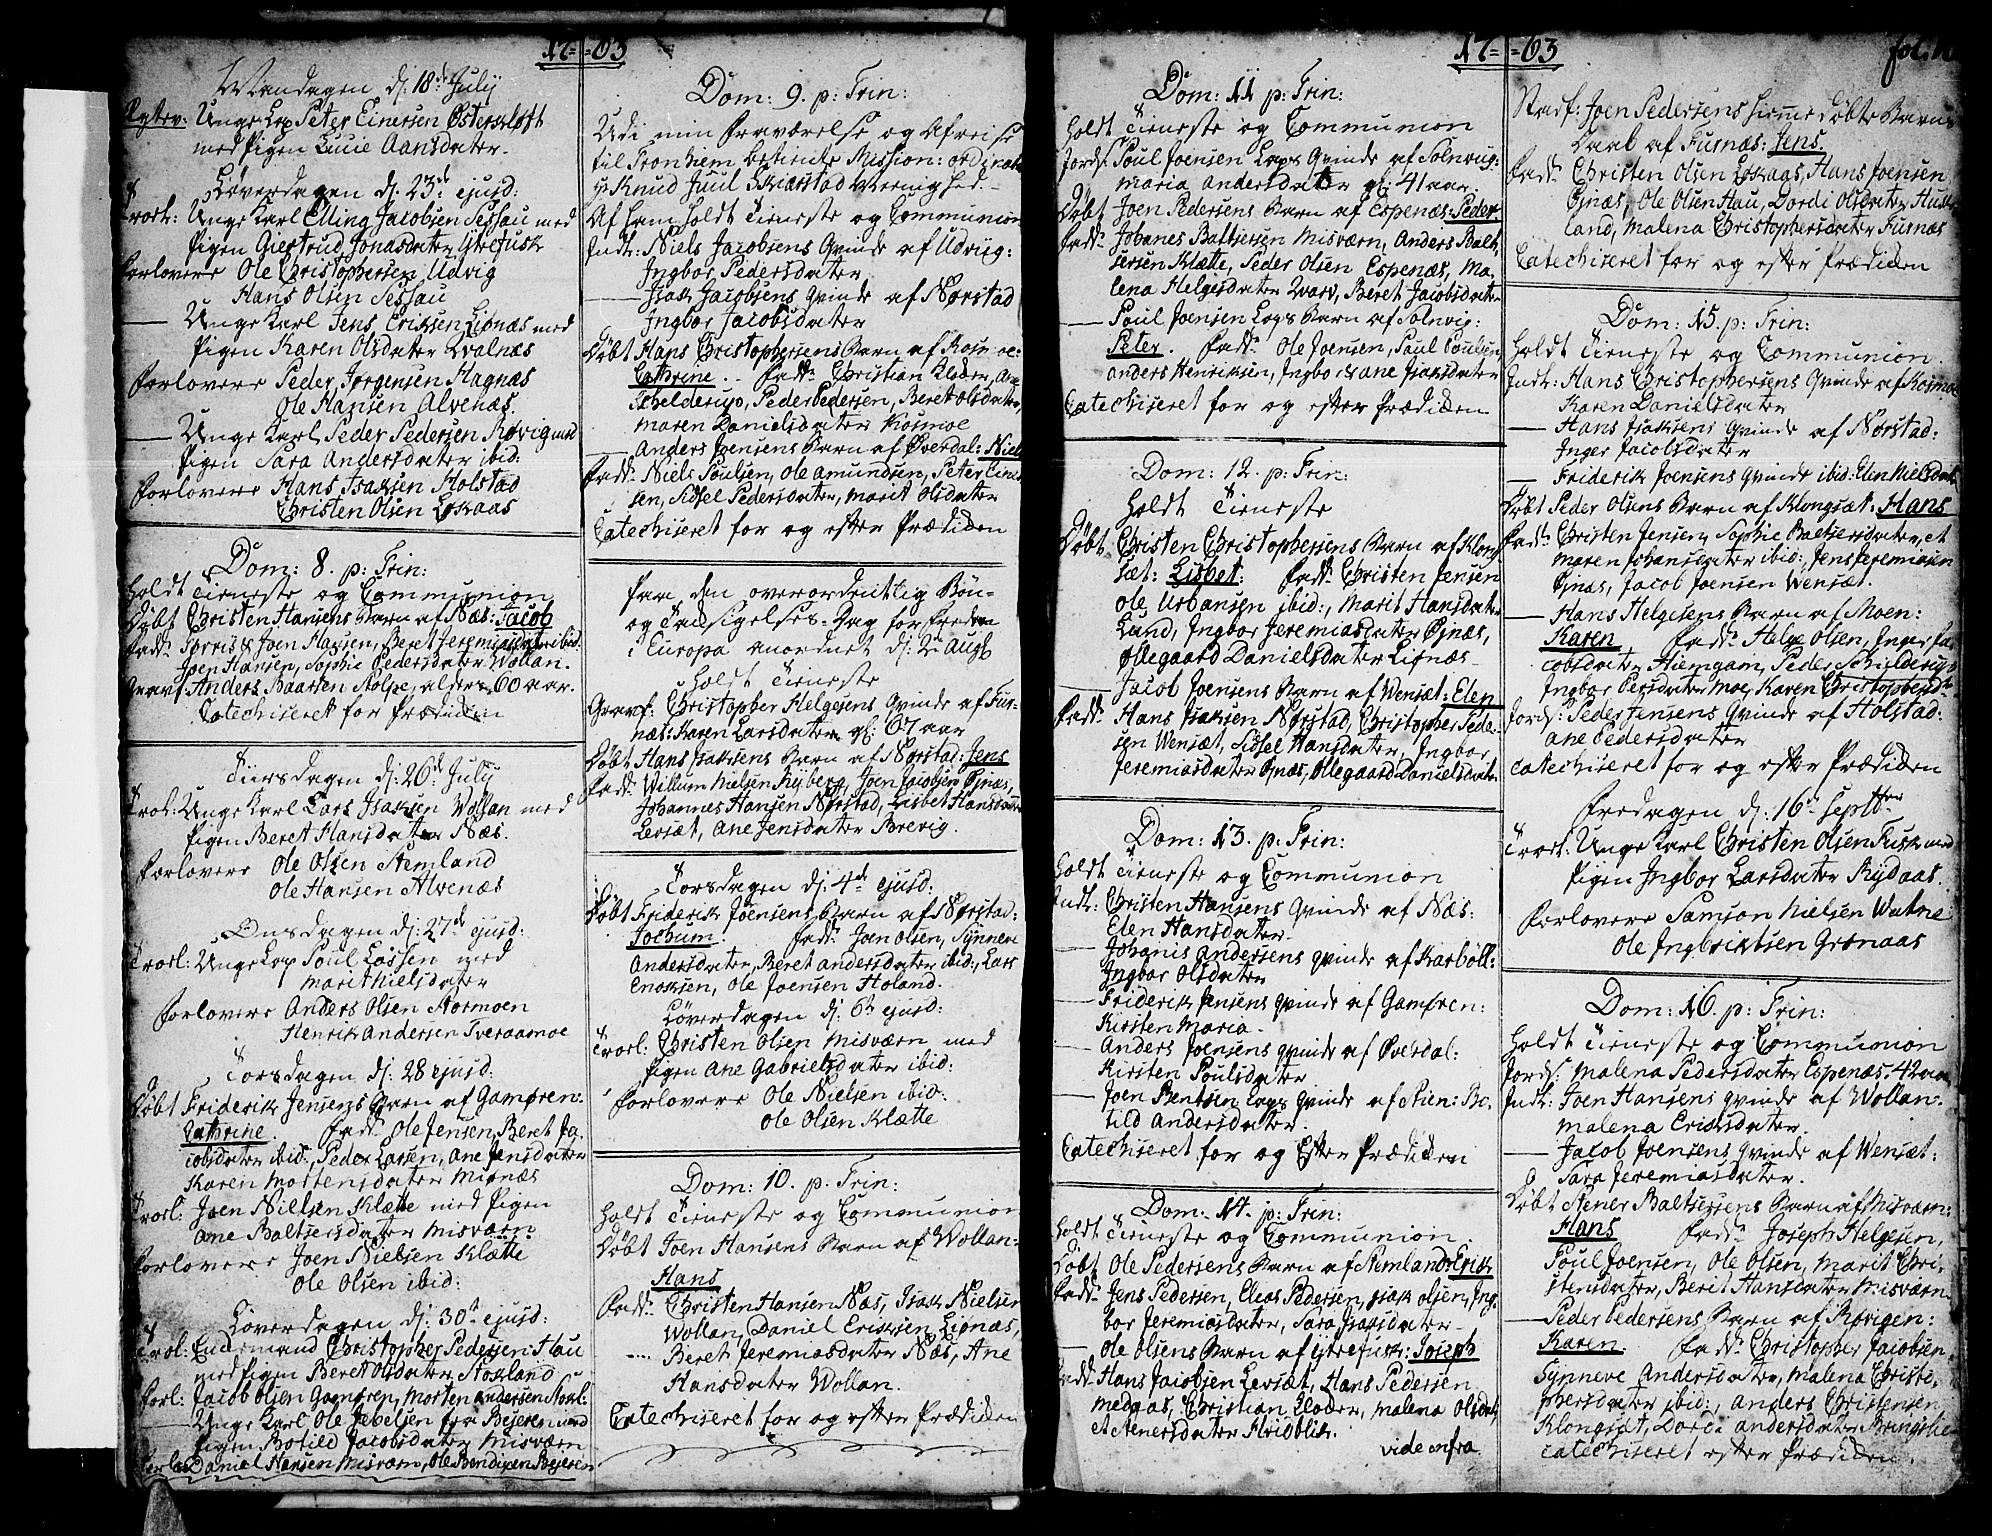 17=63
Mandagen d: 18de July
Unge Lap Peter Einersen Østerkløft
med Pigen Lucie Aansdater
Løverdagen d: 23de ejusd:
Troel: Unge Karl Elling Jacobsen Sessau med
Pigen Giertrud Jonasdater Ytrefusk
Forlovere Ole Christophersen Udvig
Hans Olsen Sessau
Unge Karl Jens Eriksen Lignæs med
Pigen Karen Olsdater Qvalnæs
Forlovere Peder Jørgensen Hagnæs
Ole Hansen Alvenæs
Unge Karl Peder Pedersen Røvig med
Pigen Sara Andersdater ibid:
Forlovere Hans Isaksen Holstad
Christen Olsen Løkaas
Dom: 8. p: Trin:
Holdt Tieneste og Communion
Døbt Christen Hansens Barn af Næs: Jacob
Fadd: Joen Hansen, Beret Jeremiasdater ibid:
Joen Hansen, Sophie Pedersdater Wollan.
Gravf: Anders Baarsen Stolpe, alder, 60 aar.
Catechiseret for Prædiken
Tiirsdagen d: 26de July
Troel: Unge Karl Lars Isaksen Wollan med
Pigen Beret Hansdater Næs.
Forlovere Ole Olsen Nemland
Ole Hansen Alvenæs
Onsdagen d: 27de ejusd:
Troel: Unge Lap Poul Lassen med
Marit Nielsdater
Forlovere Anders Olsen Stormoen
Henrik Andersen Tveraamoe
Torsdagen d: 28 ejusd:
Døbt Friderik Jensens Barn af Gamøren:
Cathrine. Fadd: Ole Jensen, Beret Ja-
cobsdater ibid:, Peder Larsen, Ane Jensdater
Karen Mortensdater Misnæs
Troel: Joen Nielsen Klætte med Pigen
Ane Baltsersdater Misværn:
Forlovere Joen Nielsen Klætte
Ole Olsen ibid:
Løverdagen d: 30te ejusd:
Troel: Enckemand Christopher Pedersen Hau
med Pigen Beret Olsdater Stokland
Forl: Jacob Olsen Gamøren, Morten Andersen
Unge Karl Ole Jebelsen fra Bejeren med
Pigen Botild Jacobsdater Misværn
Daniel Hansen Misværn, Ole Bendixen Bejeren
Dom: 9. p: Trin:
Udi min Fraværelse og Afreise
til Tronhiem betiente Mission: ordinatq
Hr Knud Juul Skiærstad Menighed.
Af ham holdt Tieneste og Communion
Indl: Niels Jacobsens Qvinde af Udviig:
Ingbor Pedersdater
Isak Jacobsens Qvinde af Nørstad
Ingbor Jacobsdater
Døbt Hans Christophersens Barn af Kosmoe:
Cathrine. Fadd: Christian Klæboe, Ane
Schelderup, Peder Pedersen, Beret Olsdater,
Maren Danielsdater Kosmoe
Anders Joensens Barn af Øverdal: Niels
Fadd: Niels Poulsen, Ole Amundsen, Peter Einer-
sen, Sidsel Pedersdater, Marit Olsdater
Catechiseret for og efter Prædiken
Paa den overordentlig Bøn-
og Tacksigelses-Dag for Freden
i Europa anordnet d: 2de Aug:
holdt Tieneste
Gravf: Christopher Helgesens Qvinde af Fur-
næs: Karen Larsdater gl: 67 aar
Døbt Hans Isaksens Barn af Nørstad: Jens
Fadd: Willum Nielsen Nyberg, Joen Jacobsen Øjnæs,
Johannes Hansen Nørstad, Lisbet Hansdater
Lersæt, Ane Jensdater Brevig.
Torsdagen d: 4de ejusd:
Døbt Friderik Joensens Barn af Nørstad:
Jochum. Fadd: Joen Olsen, Synneve
Andersdater, Beret Andersdater ibid:, Lars
Enoksen, Ole Joensen Holand.
Løverdagen d: 6te ejusd:
Troel: Christen Olsen Misværn med
Pigen Ane Gabrielsdater ibid:
Forlovere Ole Nielsen ibid:
Ole Olsen Klætte
Dom: 10. p: Trin:
Holdt Tieneste og Communion
Døbt Joen Hansens Barn af Wollan:
Hans
Fadd: Christen Hansen Næs, Isak Nielsen
Wollan, Daniel Eriksen Lignæs,
Beret Jeremiasdater Næs, Ane
Hansdater Wollan.
Catechiseret for og efter Prædiken
17=63
Dom: 11 p: Trin:
Holdt Tieneste og Communion
Jords: Poul Joensen Laps Qvinde af Solvig:
Maria Andersdater gl: 41 aar.
Døbt Joen Pedersens Barn af Espenæs: Peder
Fadd: Johanes Baltsersen Misværn, Anders Balt-
sersen Klætte, Peder Olsen Espenæs, Ma-
lena Helgesdater Qvarv, Beret Jacobsdater
Poul Joensen Laps Barn af Solvig:
Peter. Fadd: Ole Joensen, Paul Poulsen,
Anders Henriksen, Ingbor & Ane Isaksdater
Catechiseret for og efter Prædiken
Dom: 12. p: Trin:
Holdt Tieneste
Døbt Christen Christophersens Barn af Klong-
sæt: Lisbet: Fadd: Christen Jensen
Ole Urbansen ibid:, Marit Hansdater
Lund, Ingbor Jeremiasdater Øjnæs,
Ollegaard Danielsdater Lignæs
Jacob Joensens Barn af Wensæt: Elen
Fadd: Hans Isaksen Nørstad, Christopher Peder-
sen Wensæt, Sidsel Hansdater, Ingbor
Jeremiasdater Øjnæs, Ollegaard Danielsdater
Dom: 13. p: Trin:
Holdt Tieneste og Communion
Indl: Christen Hansens Qvinde af Næs:
Elen Hansdater
Johanis Andersens Qvinde af Karbøll:
Ingbor Olsdater
Friderik Jensens Qvinde af Gamøren:
Kirsten Maria
Anders Joensens Qvinde af Øverdal:
Kirsten Poulsdater
Joen Bentsen Laps Qvinde af Stien: Bo-
tild Andersdater.
Catechiseret for og Efter Prædiken
Dom: 14. p: Trin:
Holdt Tieneste og Communion.
Døbt Ole Pedersens Barn af Nemland: Erik
Fadd: Jens Pedersen, Elias Pedersen, Isak Olsen, Ing-
bor Jeremiasdater, Sara Isaksdater
Ole Olsens Barn af Ytrefusk: Joseph
Fadd: Hans Jacobsen Lersæt, Hans Pedersen
Medaas, Christian Klæboe, Malena Olsdat:
et Anersdater Hridblik.
vide infra
fol. 11
Stadf: Joen Pedersens hiemedøbte Barns
Daab af Furnæs: Jens.
Fadd: Christen Olsen Løkaas, Hans Joensen
Øjnæs, Ole Olsen Hau, Dordi Olsdater Hust-
land, Malena Christophersdater Furnæs
Catechiseret for og efter Prædiken
Dom: 15. p: Trin:
Holdt Tieneste og Communion.
Indl: Hans Christophersens Qvinde af Kosmoe
Karen Danielsdater
Hans Isaksens Qvinde af Nørstad:
Inger Jacobsdater
Friderik Joensens Qvinde ibid: Elen Nielsdat:
Døbt Peder Olsens Barn af Klongsæt: Hans
Fadd: Christen Jensen, Sophie Baltsersdater, et
Maren Johansdater ibid:, Jens Jeremiasen
Øjnæs, Jacob Joensen Wensæt.
Hans Helgesens Barn af Moen:
Karen Fadd: Helge Olsen, Inger Ja-
cobsdater Humgam, Peder Schilderup,
Ingbor Persdater Moe, Karen Christophersd:
Jords: Peder Jensens Qvinde af Holstad:
Ane Pedersdater
Catechiseret for og efter Prædiken
Fredagen d: 16de Septbr
Troel: Unge Karl Christen Olsen Fusk med
Pigen Ingbor Larsdater Rydaas.
Forlovere Samson Nielsen Watne
Ole Ingbriktsen Grønaas
Dom: 16. p: Trin:
Holdt Tieneste og Communion
Jords: Malena Pedersdater Espenæs. 42 aar
Indl: Joen Hansens Qvinde af Wollan:
Malena Eriksdater.
Jacob Joensens Qvinde af Wensæt:
Sara Jeremiasdater.
Døbt Stener Baltsersens Barn af Misværn:
Hans Fadd: Joseph Helgesen,
Poul Joensen, Ole Olsen, Marit Chri-
stensdater, Berit Hansdater Misværn
Peder Pedersens Barn af Røvigen:
Karen. Fadd: Christopher Jacobsen,
Synneve Andersdater, Malena Christo-
phersdater ibid:, Anders Christensen
Klongsæt, Dorci Andersdater Bringslie
Catechiseret efter Prædiken.